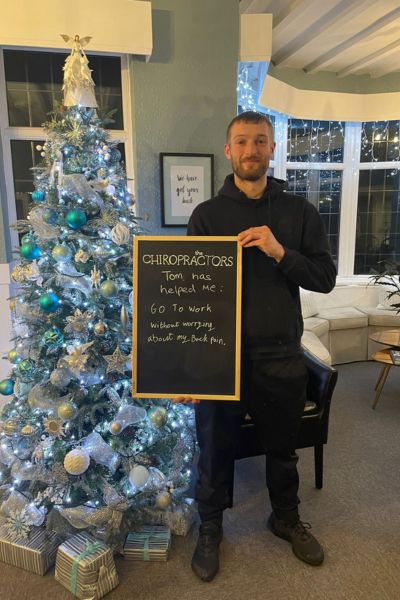 We have
got your
back
the
CHIROPRACTORS
Tom has
helped Me:
Go To Work
Without worrying
about my Back Pain.